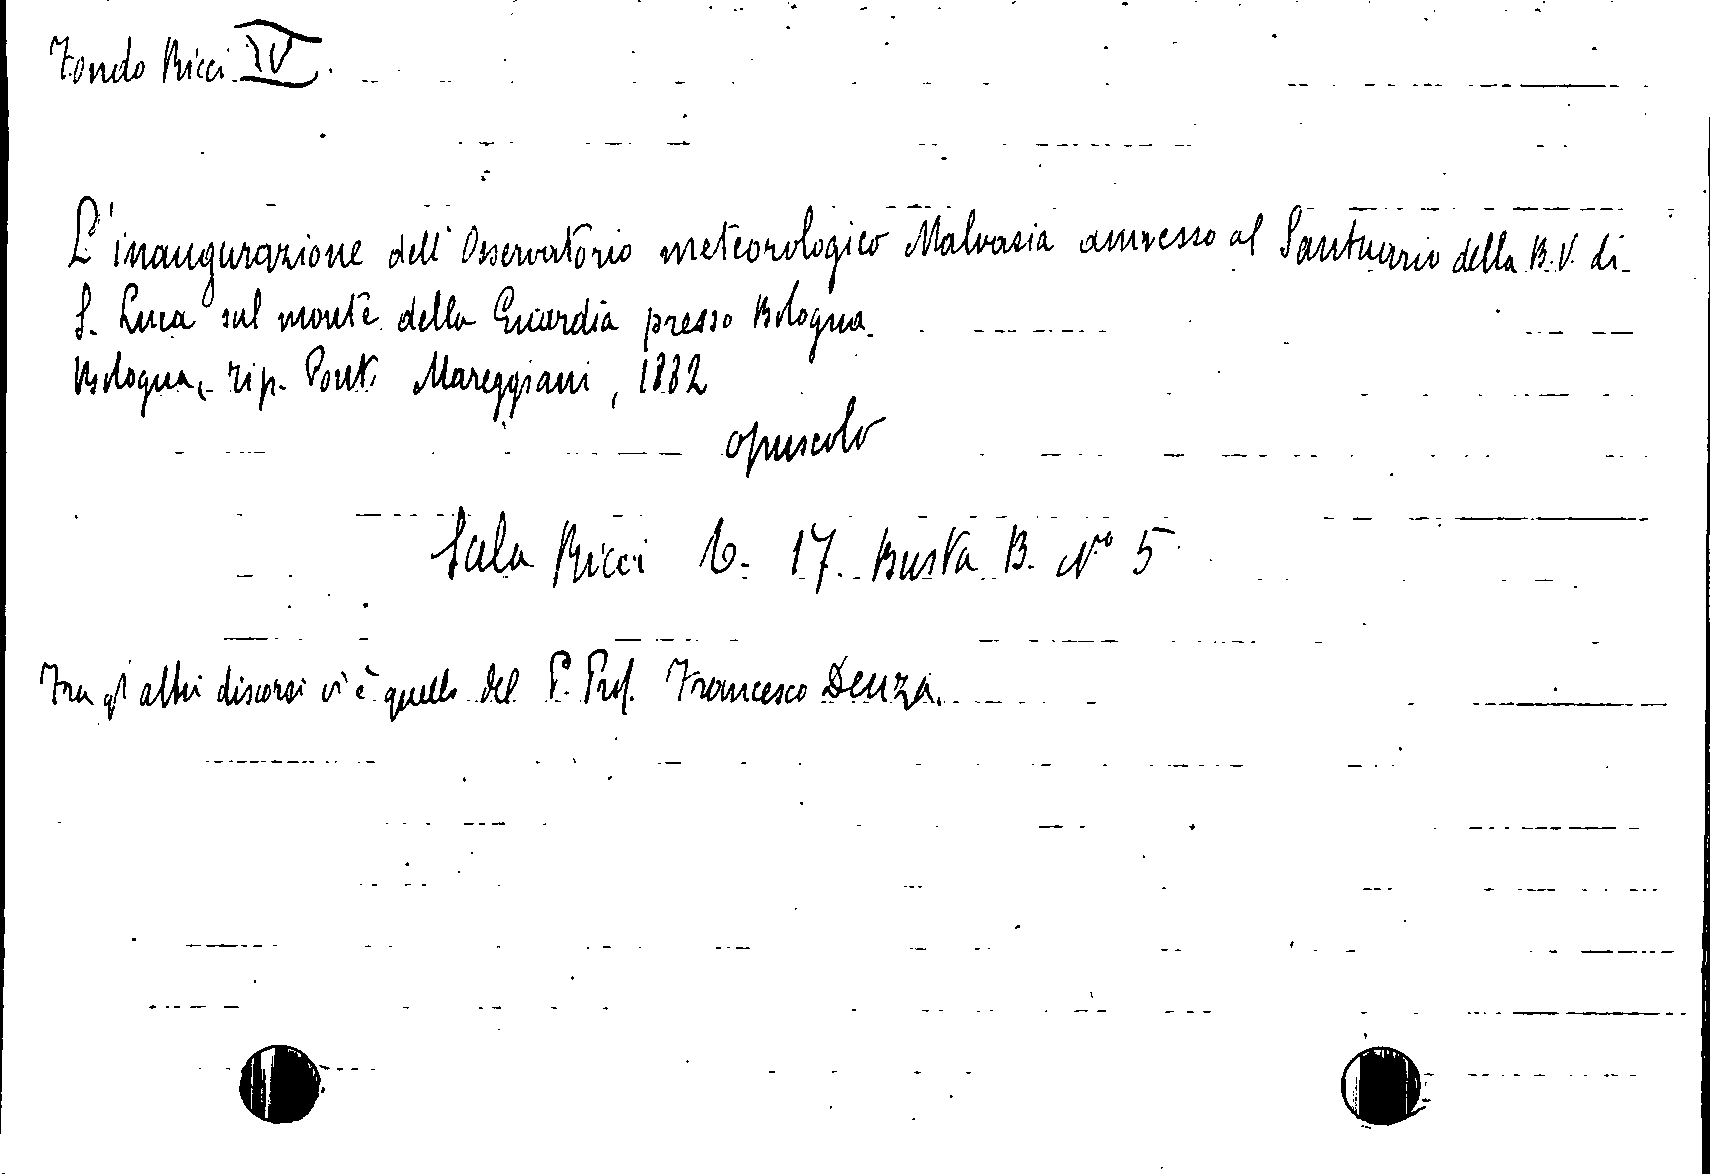 Fondo Ricci IV.
L'inaugurazione dell'Osservatorio meteorologico Malvasia annesso al Santuario della B.V. di
S. Luca sul monte della Guardia presso Bologna.
Bologna, Tip. Pont. Mareggiani, 1882
opuscolo
Sala Ricci 17. Busta B. N° 5
Tra gl'altri discorsi vi è quello del P. Prof. Francesco Denza.